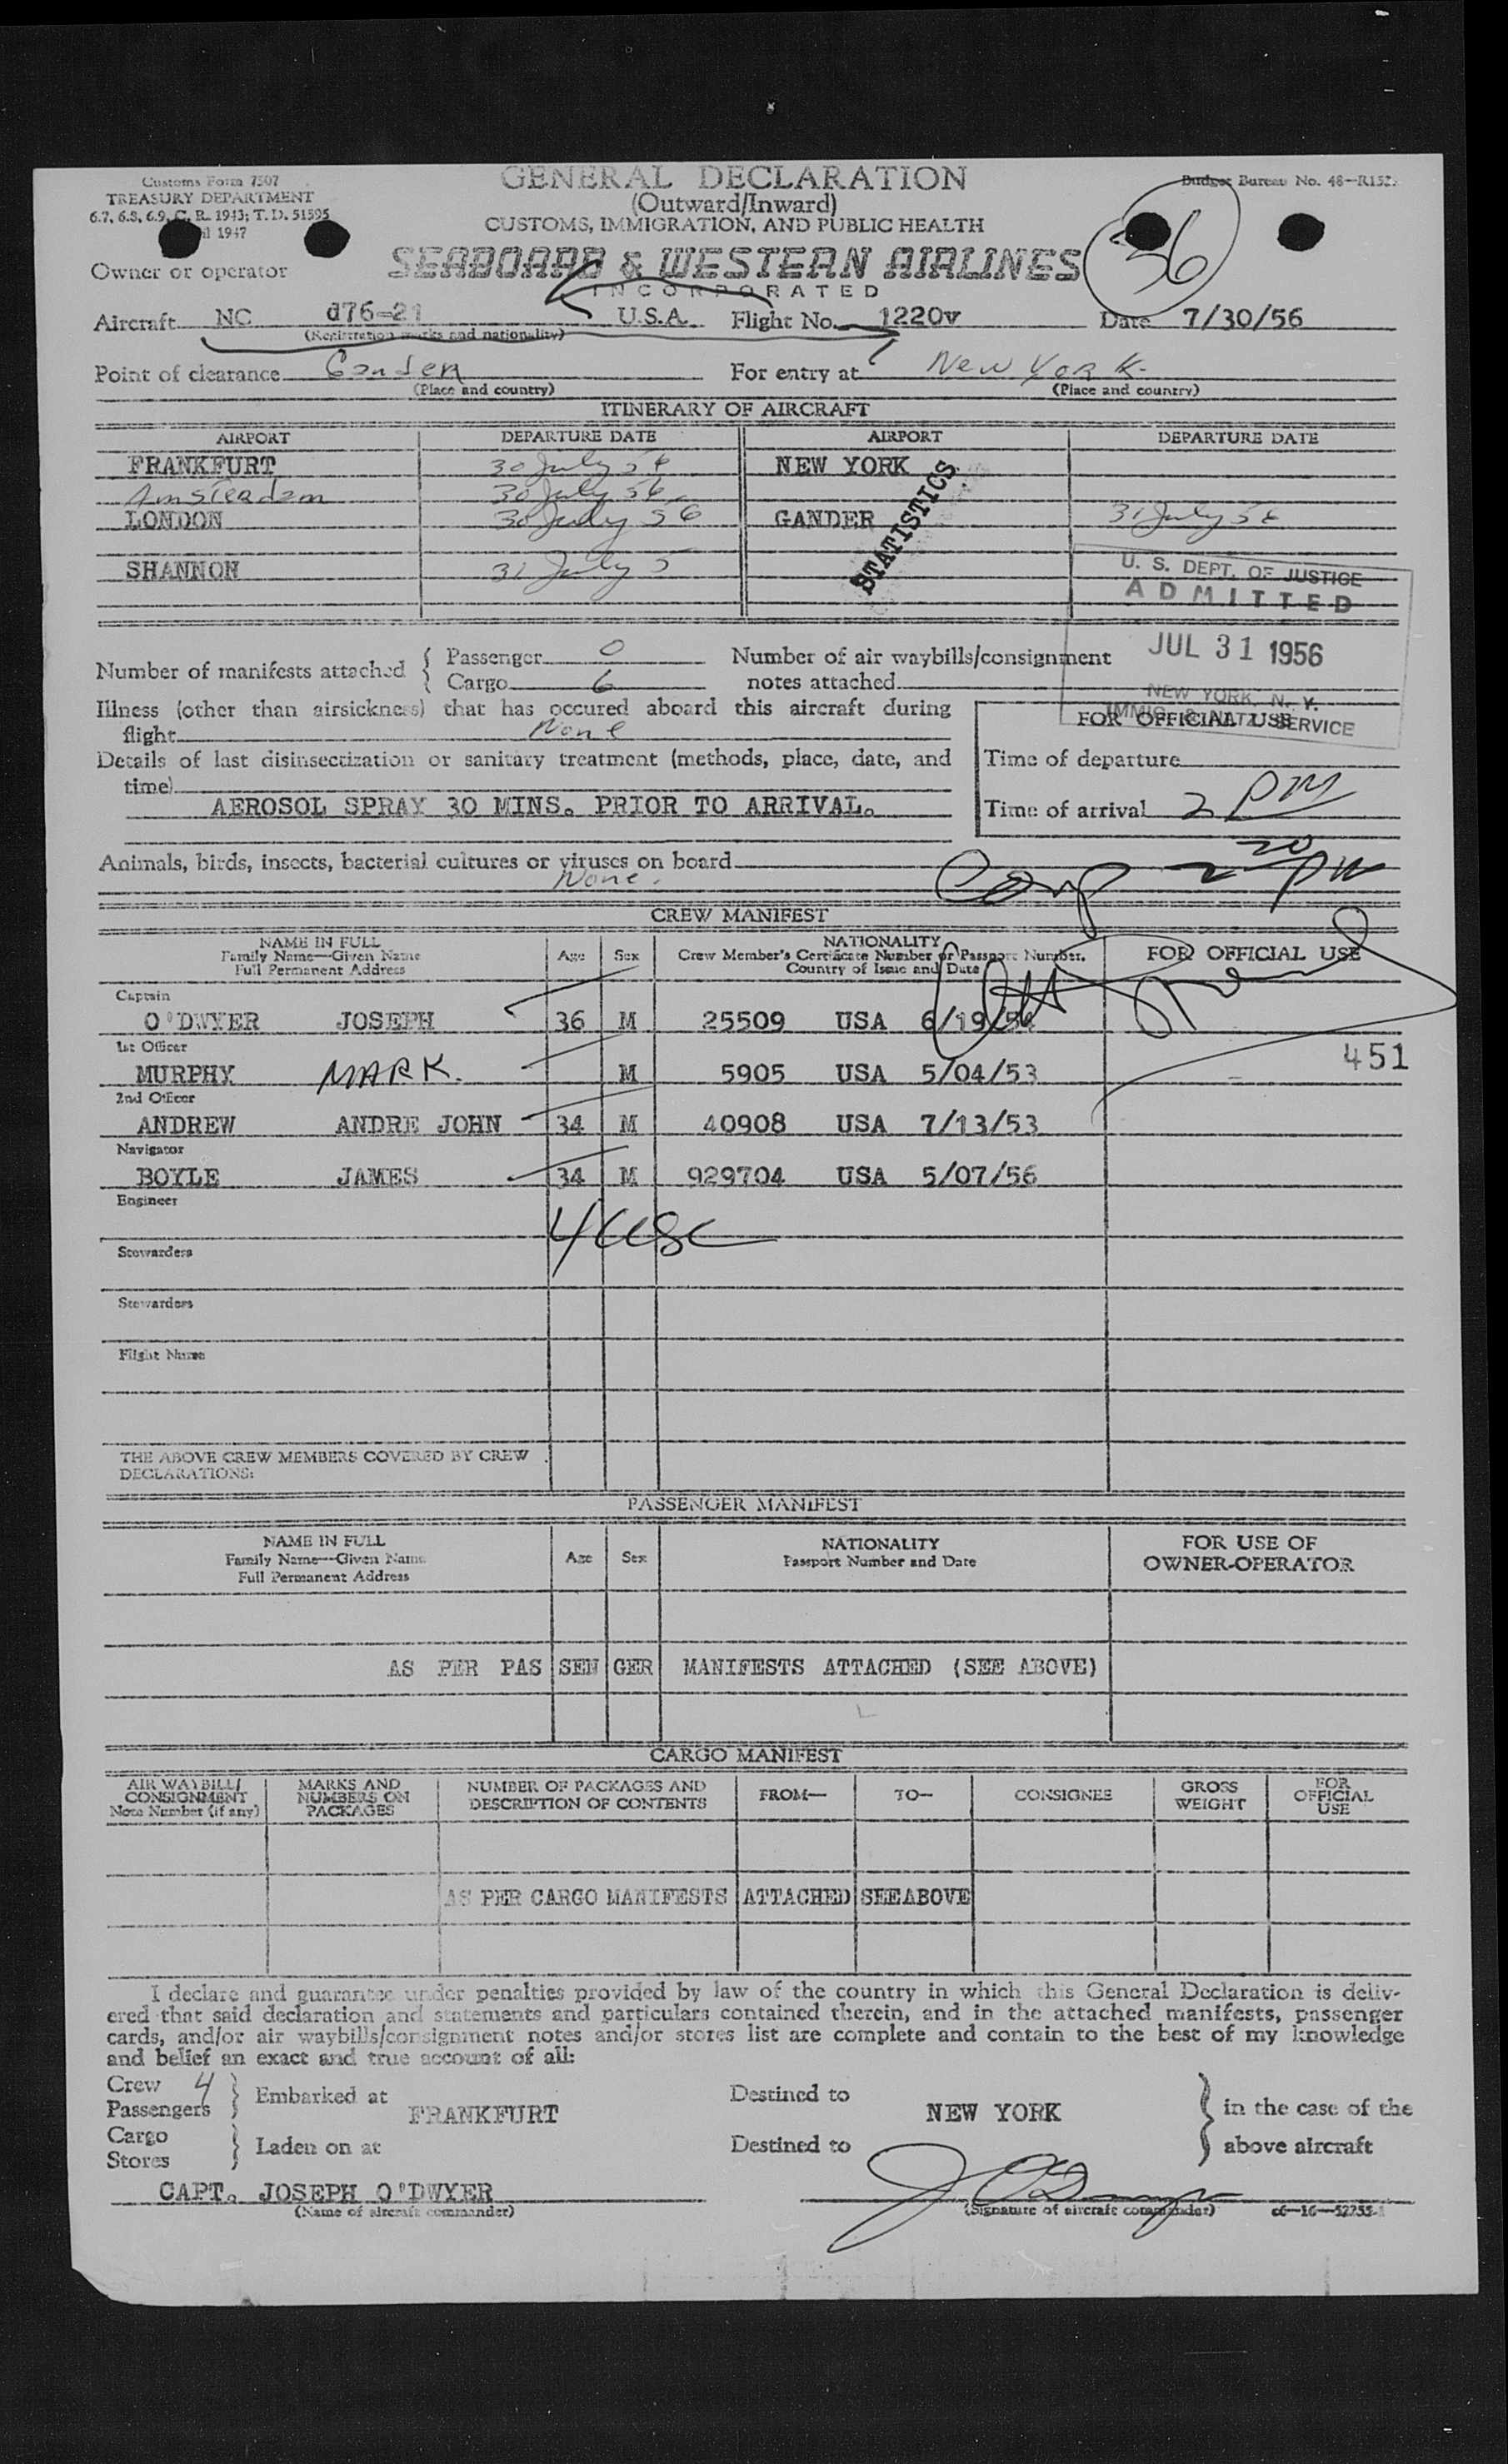 Customs Form 7507
TREASURY DEPARTMENT
6.7, 6.8, 6.9, C. R. 1943; T. D. 51595
1947
GENERAL DECLARATION
(Outward/Inward)
CUSTOMS, IMMIGRATION, AND PUBLIC HEALTH
Budget Bureau No. 48—R152
36
Owner or operator SEABOARD & WESTERN AIRLINES
INCORPORATED
Aircraft NC d76-21 U.S.A. Flight No. 1220v Date 7/30/56
(Registration marks and nationality)
Point of clearance Gander For entry at New York
(Place and country) (Place and country)
ITINERARY OF AIRCRAFT
AIRPORT DEPARTURE DATE AIRPORT DEPARTURE DATE
FRANKFURT 30 July 56 NEW YORK
Amsteadam 30 July 56
LONDON 30 July 56 GANDER 31 July 56
SHANNON 31 July 5
STATISTICS
U. S. DEPT. OF JUSTICE
ADMITTED
JUL 31 1956
NEW YORK, N. Y.
IMMIG. & NATZ. SERVICE
Number of manifests attached { Passenger 0
Cargo 6
Number of air waybills/consignment
notes attached
Illness (other than airsickness) that has occured aboard this aircraft during
flight None
FOR OFFICIAL USE
Details of last disinsectization or sanitary treatment (methods, place, date, and
time)
AEROSOL SPRAY 30 MINS. PRIOR TO ARRIVAL.
Time of departure
Time of arrival 2 PM
Animals, birds, insects, bacterial cultures or viruses on board
None.
2 20 PM
CREW MANIFEST
NAME IN FULL
Family Name—Given Name
Full Permanent Address
Age Sex
NATIONALITY
Crew Member's Certificate Number or Passport Number,
Country of Issue and Date
FOR OFFICIAL USE
Captain
O'DWYER JOSEPH 36 M 25509 USA 6/19/56
1st Officer
451
MURPHY MARK. M 5905 USA 5/04/53
2nd Officer
ANDREW ANDRE JOHN 34 M 40908 USA 7/13/53
Navigator
BOYLE JAMES 34 M 929704 USA 5/07/56
Engineer
4 USC
Stewardess
Stewardess
Flight Nurse
THE ABOVE CREW MEMBERS COVERED BY CREW
DECLARATIONS:
PASSENGER MANIFEST
NAME IN FULL
Family Name—Given Name
Full Permanent Address
Age Sex
NATIONALITY
Passport Number and Date
FOR USE OF
OWNER-OPERATOR
AS PER PAS SEN GER MANIFESTS ATTACHED (SEE ABOVE)
CARGO MANIFEST
AIR WAYBILL/
CONSIGNMENT
Note Number (if any)
MARKS AND
NUMBERS ON
PACKAGES
NUMBER OF PACKAGES AND
DESCRIPTION OF CONTENTS
FROM— TO— CONSIGNEE
GROSS
WEIGHT
FOR
OFFICIAL
USE
AS PER CARGO MANIFESTS ATTACHED SEEABOVE
I declare and guarantee under penalties provided by law of the country in which this General Declaration is deliv-
ered that said declaration and statements and particulars contained therein, and in the attached manifests, passenger
cards, and/or air waybills/consignment notes and/or stores list are complete and contain to the best of my knowledge
and belief an exact and true account of all:
Crew 4
Passengers } Embarked at FRANKFURT Destined to NEW YORK } in the case of the
Cargo
Stores } Laden on at Destined to above aircraft
CAPT. JOSEPH O'DWYER
(Name of aircraft commander) (Signature of aircraft commander) c6—16—52255-1